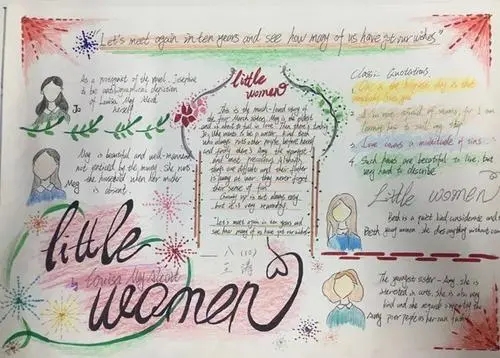 "Let's meet again in ten years and see how many of us have got our wishes"
As a protagonist of the novel, Josephine
is the autobiographical depiction
of Louisa May
herself
Jo
Meg is beautiful and well-mannered
not enticed by the money. She runs
the household when her mother
is absent.
Meg
little
women
by Louisa May Alcott
little
women
This is the much-loved story of
the four March sisters. Meg is the oldest
and is about to fall in love. Then there's
who wants to be a writer. Kind Beth
who always puts other people before herself
and finally there's Amy, the youngest
and most precocious. Although
times are difficult and their father
is away at war they never forget
their sense of fun.
Growing up is not always easy
but it's very rewarding
Let's meet again in ten years and
see how many of us have got our wishes
一八 (10)
Classic Quotations
1. is the happiest day is the
2. I'm not afraid of storms, for I am
learning how to sail my ship
3. Love covers a multitude of sins
4. Such hours are beautiful to live, but
very hard to describe
Little women
Beth is a quiet kind considerate and
young women. she does anything without com
Beth
The youngest sister - Amy. she is
interested in arts. she is also very
kind and she
Amy poor people as her own fashion